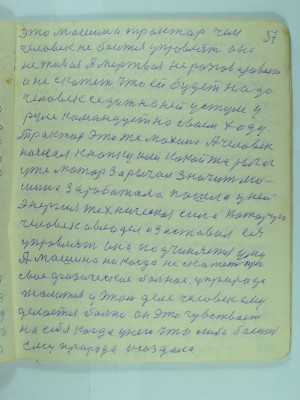 57
это машина и трактар чем
человек не боится управлят она
не живая А мертвая не разговаривает
а не скажет что ей будет надо
человек седит на ней устции у
руле командует по своем ходу
Трактор Это же махина А человек
нажал кнопку или какой та рычаг
уже мотор Зарычал Значит ма-
шина Заработала пошла у ней
Энергия техническая сила Которую
человек и Заставил ей
управлят она подчиняется ему
А машина некогда не скажет про
свое физическое болное. у природе
у этом деле человек ему
делается болно он это чувствует
на себя когда у него что либо болит
ему природа создала